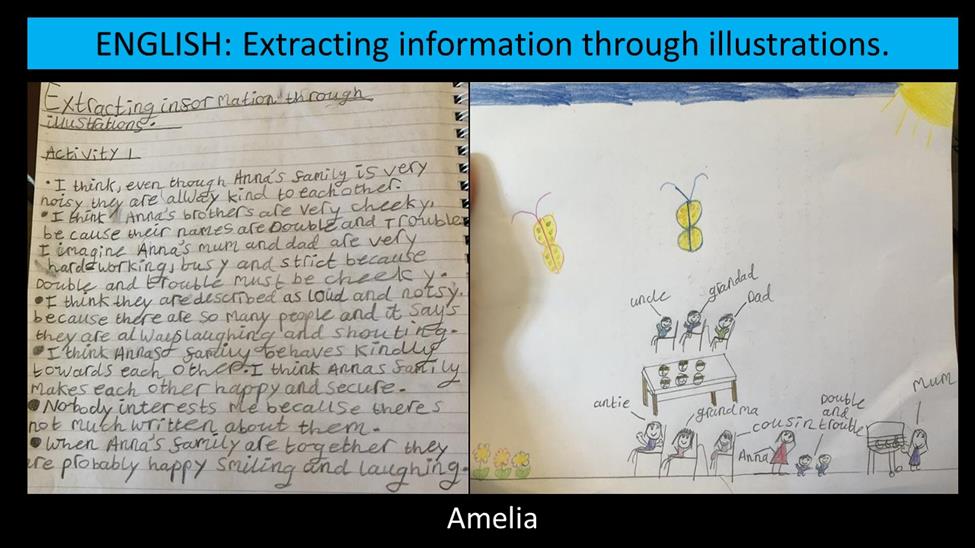 ENGLISH: Extracting information through illustrations.
Extracting information through
illustrations.
Activity 1
• I think, even though Anna's family is very
noisy they are allway kind to each other.
• I think Anna's brothers are very cheeky,
be cause their names are Double and Trouble.
I imagine Anna's mum and dad are very
hard-working, busy and strict because
Double and trouble must be cheeky.
• I think they are described as loud and noisy.
because there are so many people and it says
they are always laughing and shouting.
• I think Annas family behaves kindly
towards each other. I think Annas family
makes each other happy and secure.
• Nobody interests me because theres
not much written about them.
• When Anna's family are together they
are probably happy smiling and laughing.
uncle
grandad
Dad
antie
grandma
cousin
Anna
Double
and
trouble
Mum
Amelia